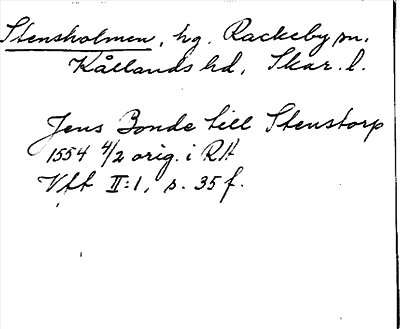 Stensholmen, hg. Rackeby sn.
Kållands hd, Skar. l.
Jens Bonde till Stenstorp
1554 4/2 orig. i RA
Vft II:1, s. 35 f.